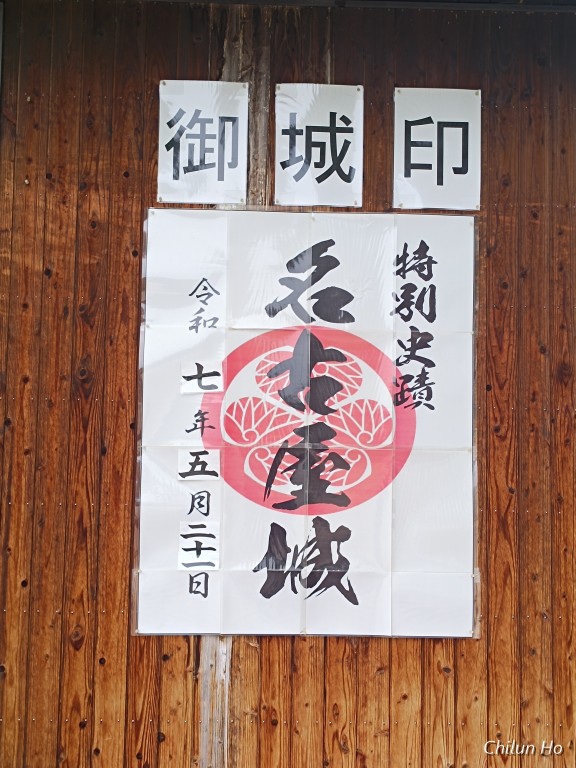 御城印
特別史蹟
名古屋城
令和七年五月二十一日
Chilun Ho